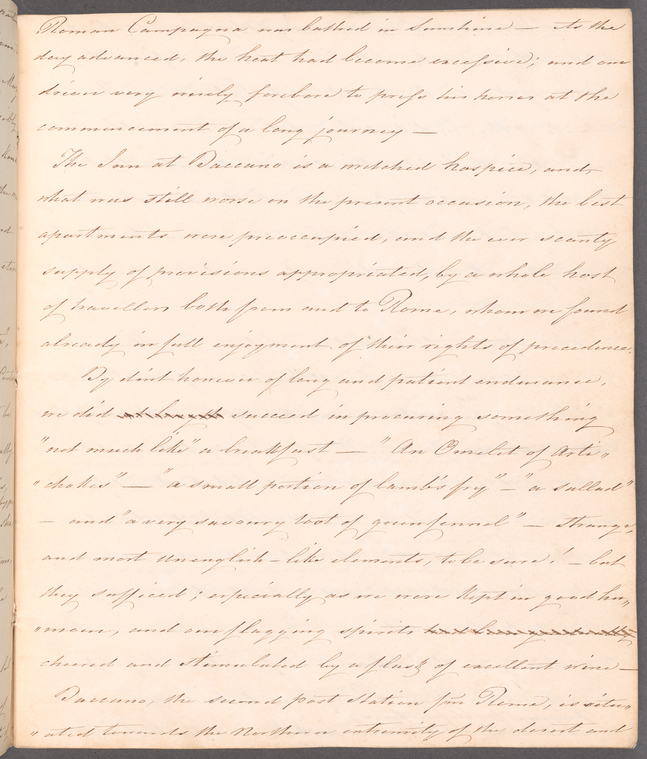 Roman Campagna was bathed in Sunshine — As the
day advanced, the heat had become excessive; and our
driver very wisely forbore to press his horses at the
commencement of a long journey —
The Inn at Baccano is a wretched hospice, and,
what was still worse on the present occasion, the best
apartments were preoccupied, and the ever scanty
supply of provisions appropriated, by a whole host
of travellers both from and to Rome, whom we found
already in full enjoyment of their rights of precedence.
By dint however of long and patient endurance,
we did at length succeed in procuring something
"not much like" a breakfast — "An Omelet of Arti"
"chokes" — "a small portion of lamb's fry" — "a sallad"
— and "a very savoury root of green fennel" — strange,
and most unenglish-like elements, to be sure! — but
they sufficed; especially as we were kept in good hu"
"mour, and our flagging spirits
cheered and stimulated by a flask of excellent wine —
Baccano, the second post station from Rome, is situ"
"ated towards the Northern extremity of the desert and